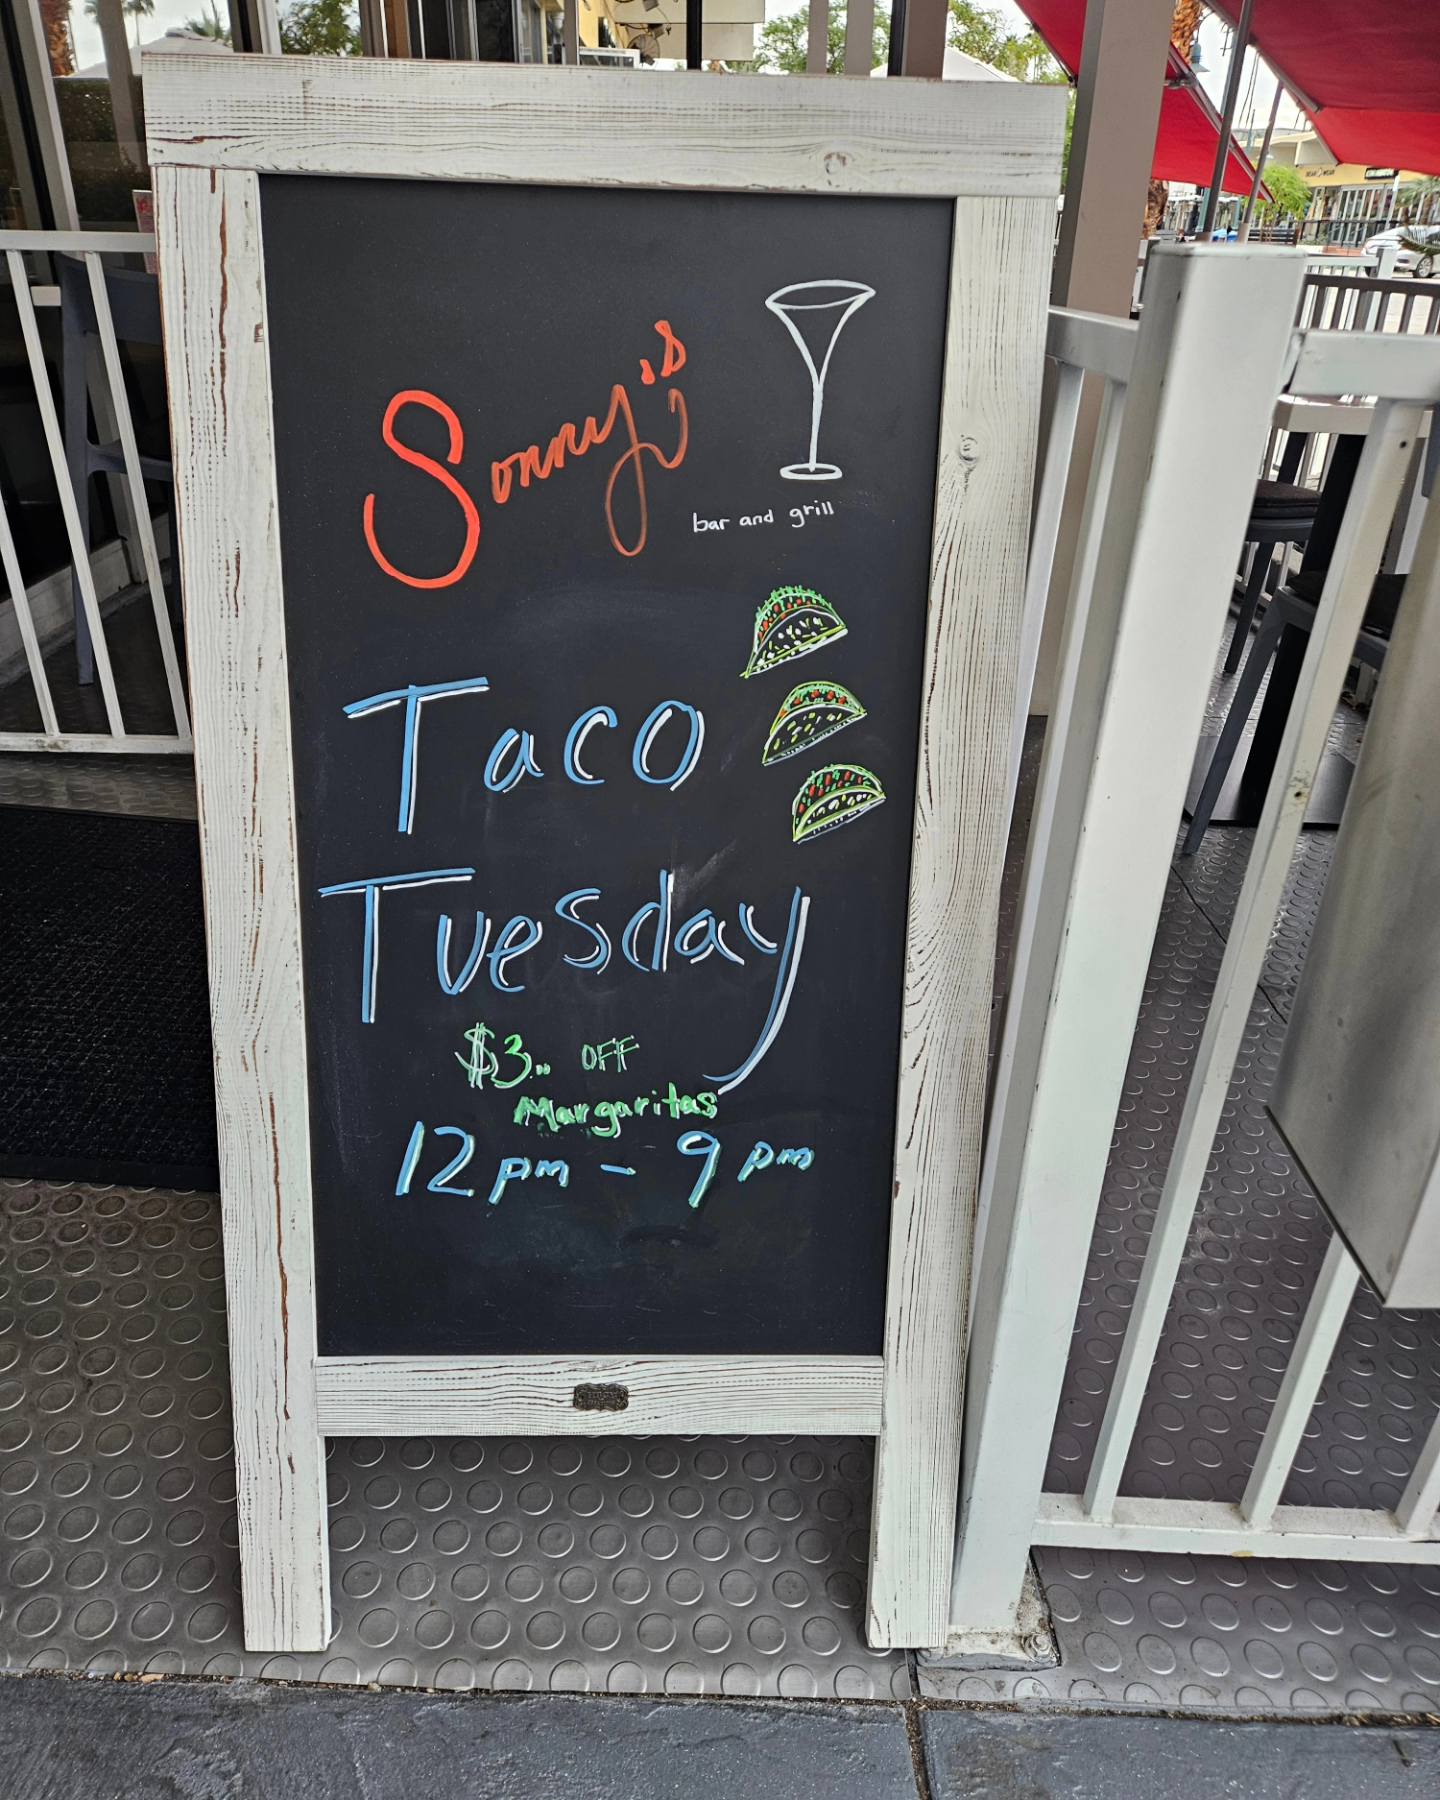 Sonny's
bar and grill
Taco
Tuesday
$3.. OFF
Margaritas
12pm - 9pm